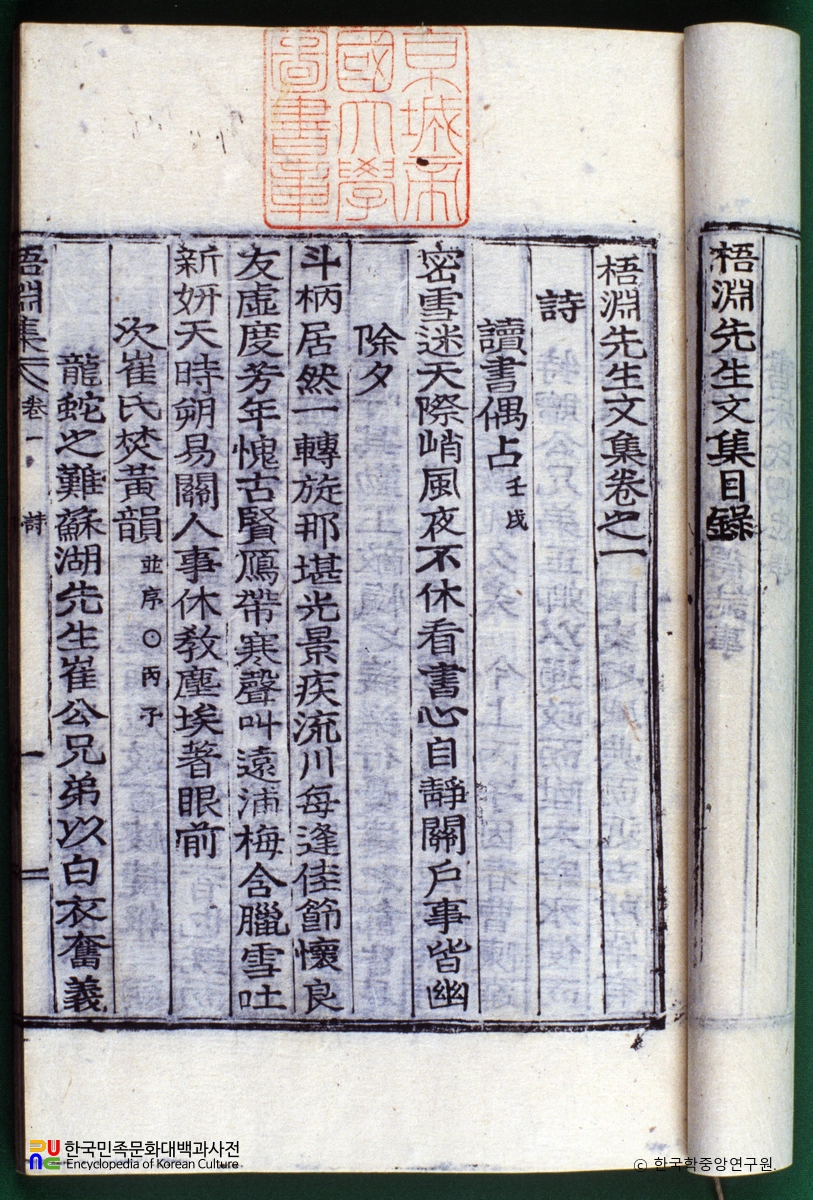 梧淵先生文集目錄
京城帝
國大學
圖書章
梧淵先生文集卷之一
詩
讀書偶占 壬戌
密雪迷天際峭風夜不休看書心自靜關戶事皆幽
除夕
斗柄居然一轉旋那堪光景疾流川每逢佳節懷良
友虛度芳年愧古賢鴈帶寒聲叫遠浦梅含臘雪吐
新姸天時朔易關人事休敎塵埃著眼前
次崔氏焚黃韻 並序○丙子
龍蛇之難蘇湖先生崔公兄弟以白衣奮義
梧淵集 卷一 詩
한국민족문화대백과사전
Encyclopedia of Korean Culture
© 한국학중앙연구원.